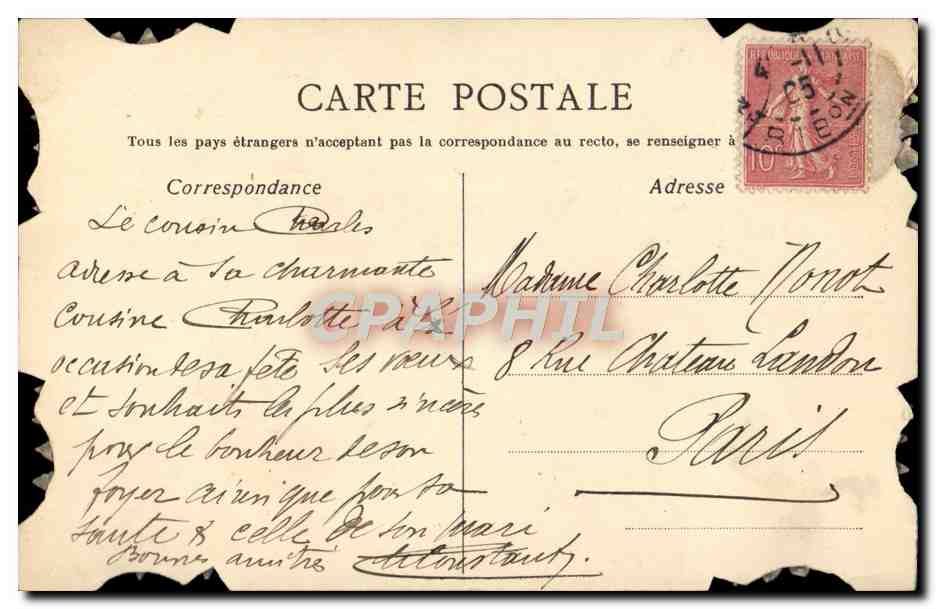 CARTE POSTALE
Tous les pays étrangers n'acceptant pas la correspondance au recto, se renseigner à
Correspondance
Le cousin Charles
adresse à sa charmante
cousine Charlotte à l'
occasion de sa fête ses vœux
et souhaits les plus sincères
pour le bonheur de son
foyer ainsi que pour sa
santé & celle de son mari
Bonnes amitiés Constant
Adresse
Madame Charlotte Nonot
8 Rue Chateau Landon
Paris
10c
05
CPAPHIL